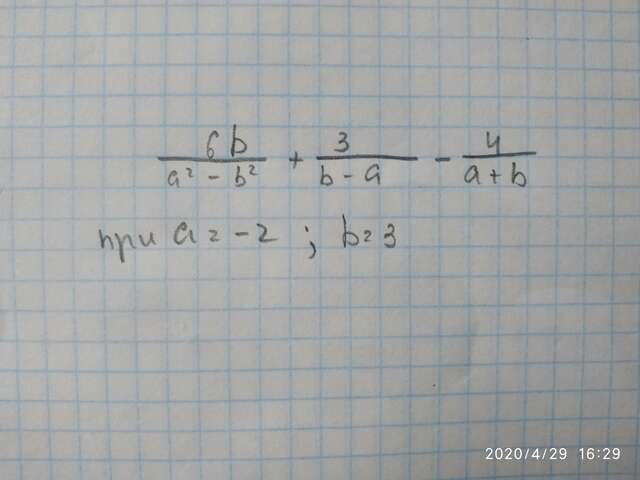 6b/(a² - b²) + 3/(b - a) - 4/(a + b)
при a = -2 ; b = 3
2020/4/29 16:29